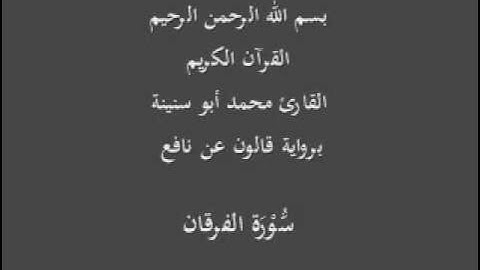 بسم الله الرحمن الرحيم
القرآن الكريم
القارئ محمد أبو سنينة
برواية قالون عن نافع
سُّوْرَة الفرقان